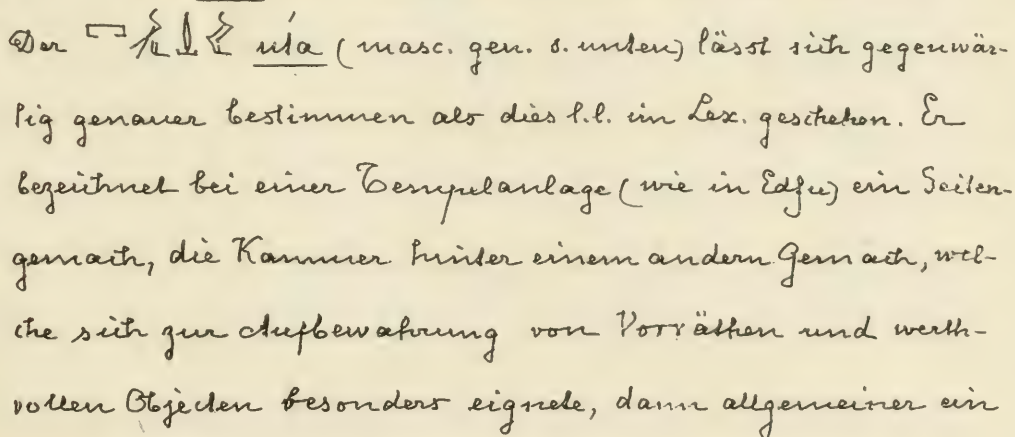 Der uťa (masc. gen. s. unten) lässt sich gegenwär-
tig genauer bestimmen als dies l.l. im Lex. geschehen. Er
bezeichnet bei einer Tempelanlage (wie in Edfu) ein Seiten-
gemach, die Kammer hinter einem andern Gemach, wel-
che sich zur Aufbewahrung von Vorräthen und werth-
vollen Objecten besonders eignete, dann allgemeiner ein